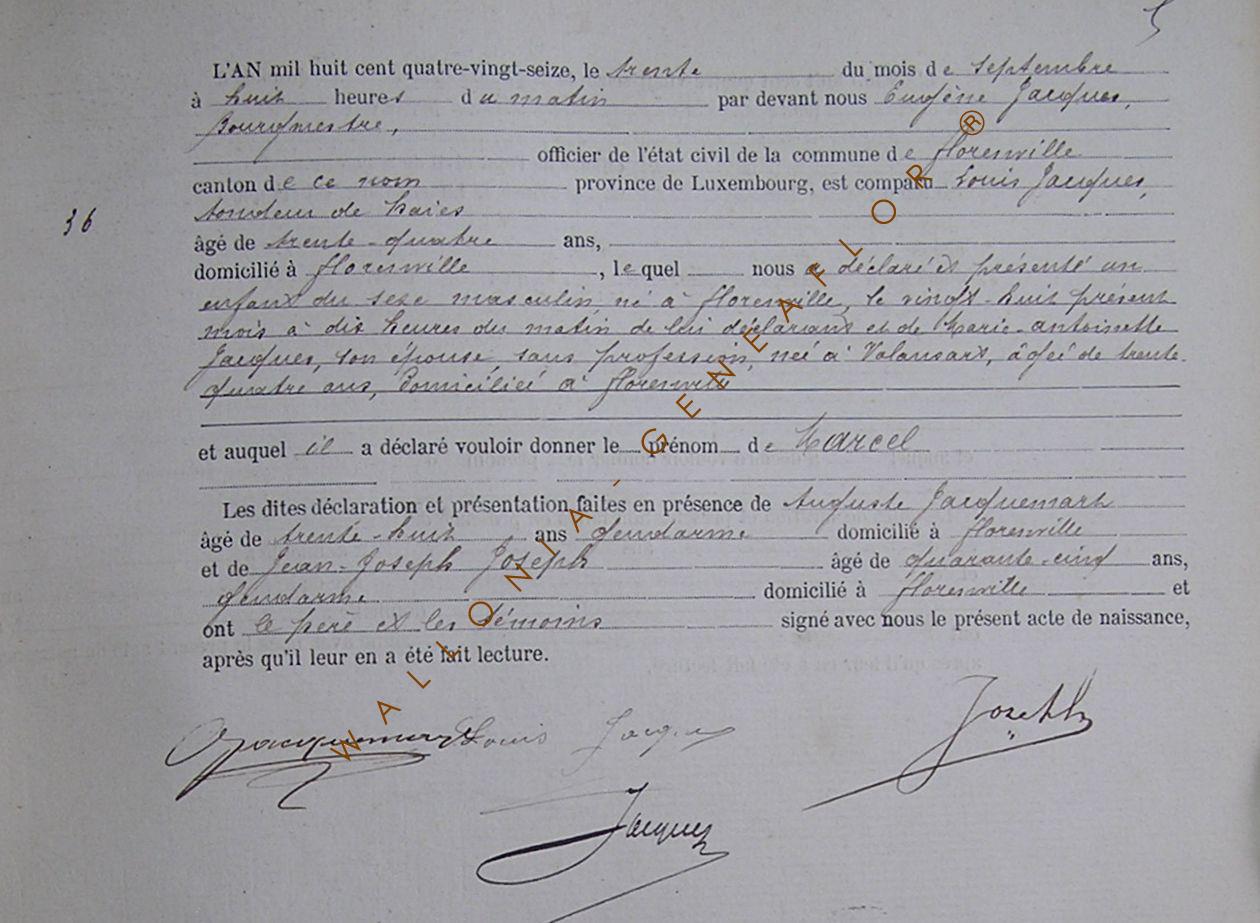 L'AN mil huit cent quatre-vingt-seize, le trente du mois de septembre
à huit heures du matin par devant nous Eugène Jacques,
Bourgmestre,
officier de l'état civil de la commune de florenville
canton de ce nom province de Luxembourg, est comparu Louis Jacques,
36
tondeur de haies
âgé de trente-quatre ans,
domicilié à florenville, lequel nous a déclaré et présenté un
enfant du sexe masculin, né à florenville, le vingt-huit présent
mois à dix heures du matin de lui déclarant et de Marie-antoinette
Jacques, son épouse sans profession, neé à Valansart, âgeé de trente-
quatre ans, domicilieé à florenville
et auquel il a déclaré vouloir donner le prénom de Marcel
Les dites déclaration et présentation faites en présence de Auguste Jacquemart
âgé de trente-huit ans gendarme domicilié à florenville
et de Jean-Joseph Joseph âgé de quarante-cinq ans,
gendarme domicilié à florenville et
ont le père et les témoins signé avec nous le présent acte de naissance,
après qu'il leur en a été fait lecture.
Jacquemart Louis Jacques Joseph
Jacques
WALLONIA-GENEAFLOR®